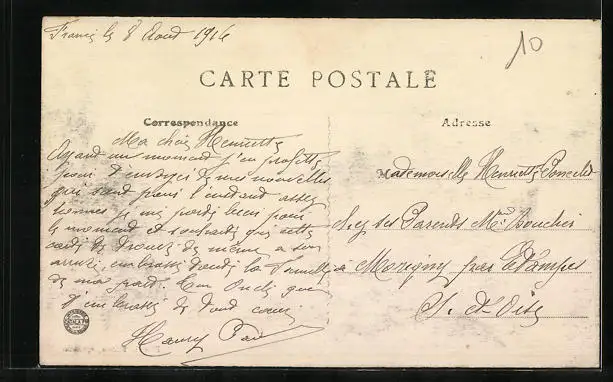 le 8 Aout 1916
10
CARTE POSTALE
Correspondance
Ma chère Henriette
Ayant un moment j'en profite
pour t'envoyer de mes nouvelles
qui sont pour l'instant assez
bonnes je me porte bien pour
le moment et souhaite que cette
carte te trouve de même a son
arrivée, embrasse toute la famille
de ma part. Ton Oncle qui
t'embrasse de tout cœur
Adresse
Mademoiselle Henriette
Chez ses Parents Md Boucher
à Morigny près Etampes
S. et Oise